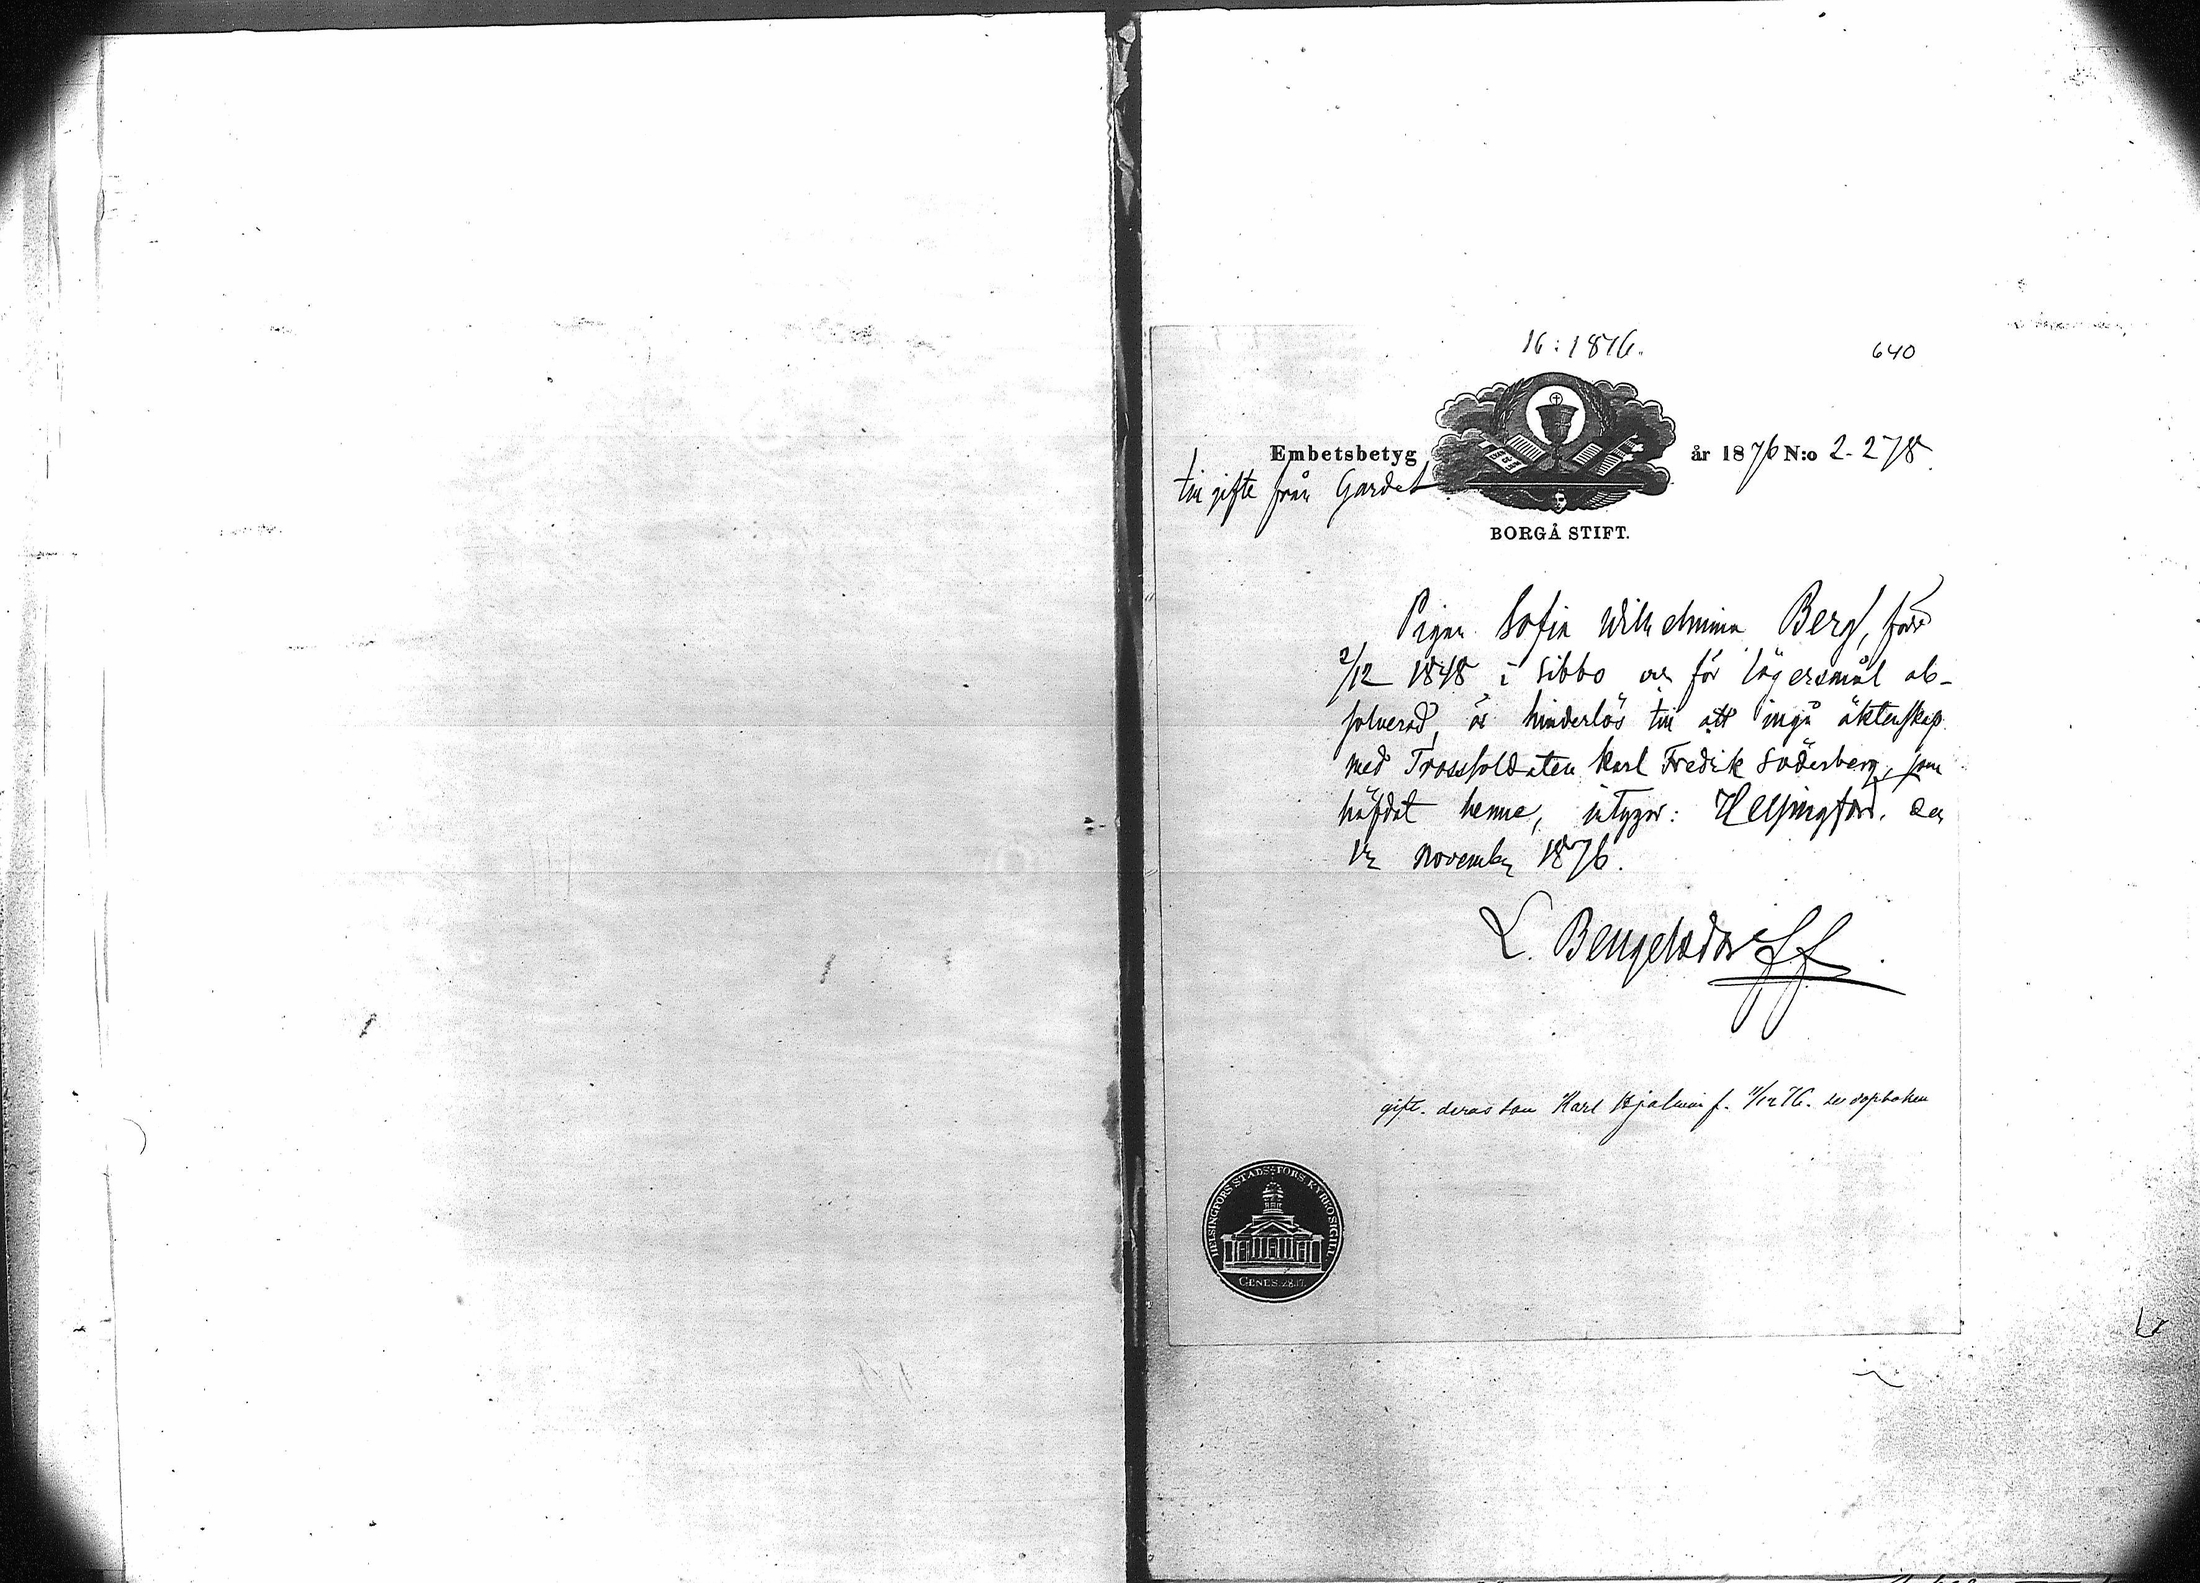 16:1876.
640
Embetsbetyg år 1876 N:o 2-278.
till gifte från Gardet
BORGÅ STIFT.
Pigan Sofia Wilhelmina Berg, född
2/12 1848 i Sibbo och för lägersmål ab-
solverad, är hinderlös till att ingå äktenskap
med Trossoldaten Karl Fredrik Söderberg, som
häfdat henne, intygar: Helsingfors, den
november 1876.
L. Bengelsdorff.
gift. deras son Karl Hjalmar f. /12 76. se dopboken
HELSINGFORS STADS-FÖRS. KYRKO SIGILL
GENES. 28.17.